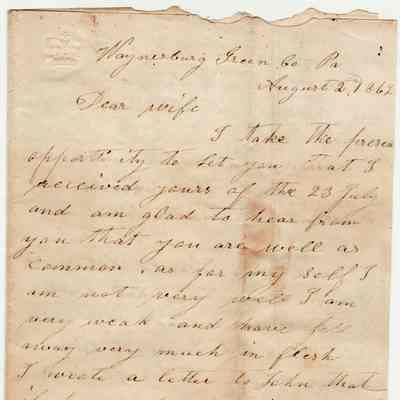 Waynesburg Green Co Pa
August 2, 1862
Dear wife
I take the
opportuity to let you that I
received yours of the 23 July
and am glad to hear from
you that you are well as
common. as for my self I
am not very well I am
very weak and have fell
away very much in flesh
I wrote a letter to John that